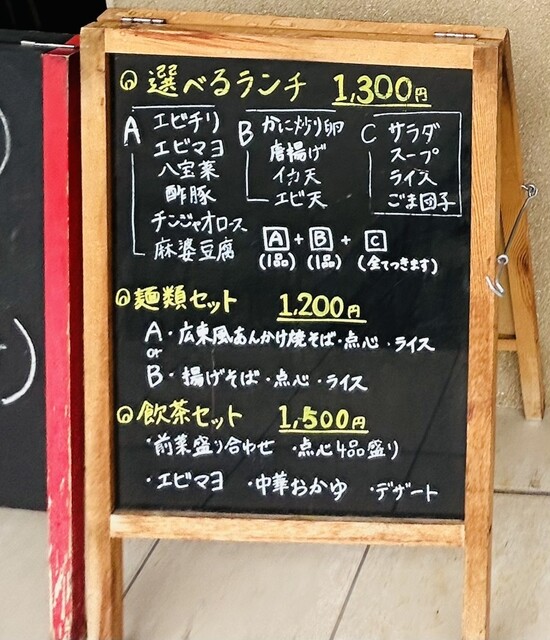 選べるランチ 1,300円
A エビチリ
エビマヨ
八宝菜
酢豚
チンジャオロース
麻婆豆腐
B かに炒り卵
唐揚げ
イカ天
エビ天
C サラダ
スープ
ライス
ごま団子
A + B + C
(1品) (1品) (全てつきます)
麺類セット 1,200円
A・広東風あんかけ焼そば・点心・ライス
or
B・揚げそば・点心・ライス
飲茶セット 1,500円
・前菜盛り合わせ ・点心4品盛り
・エビマヨ ・中華おかゆ ・デザート